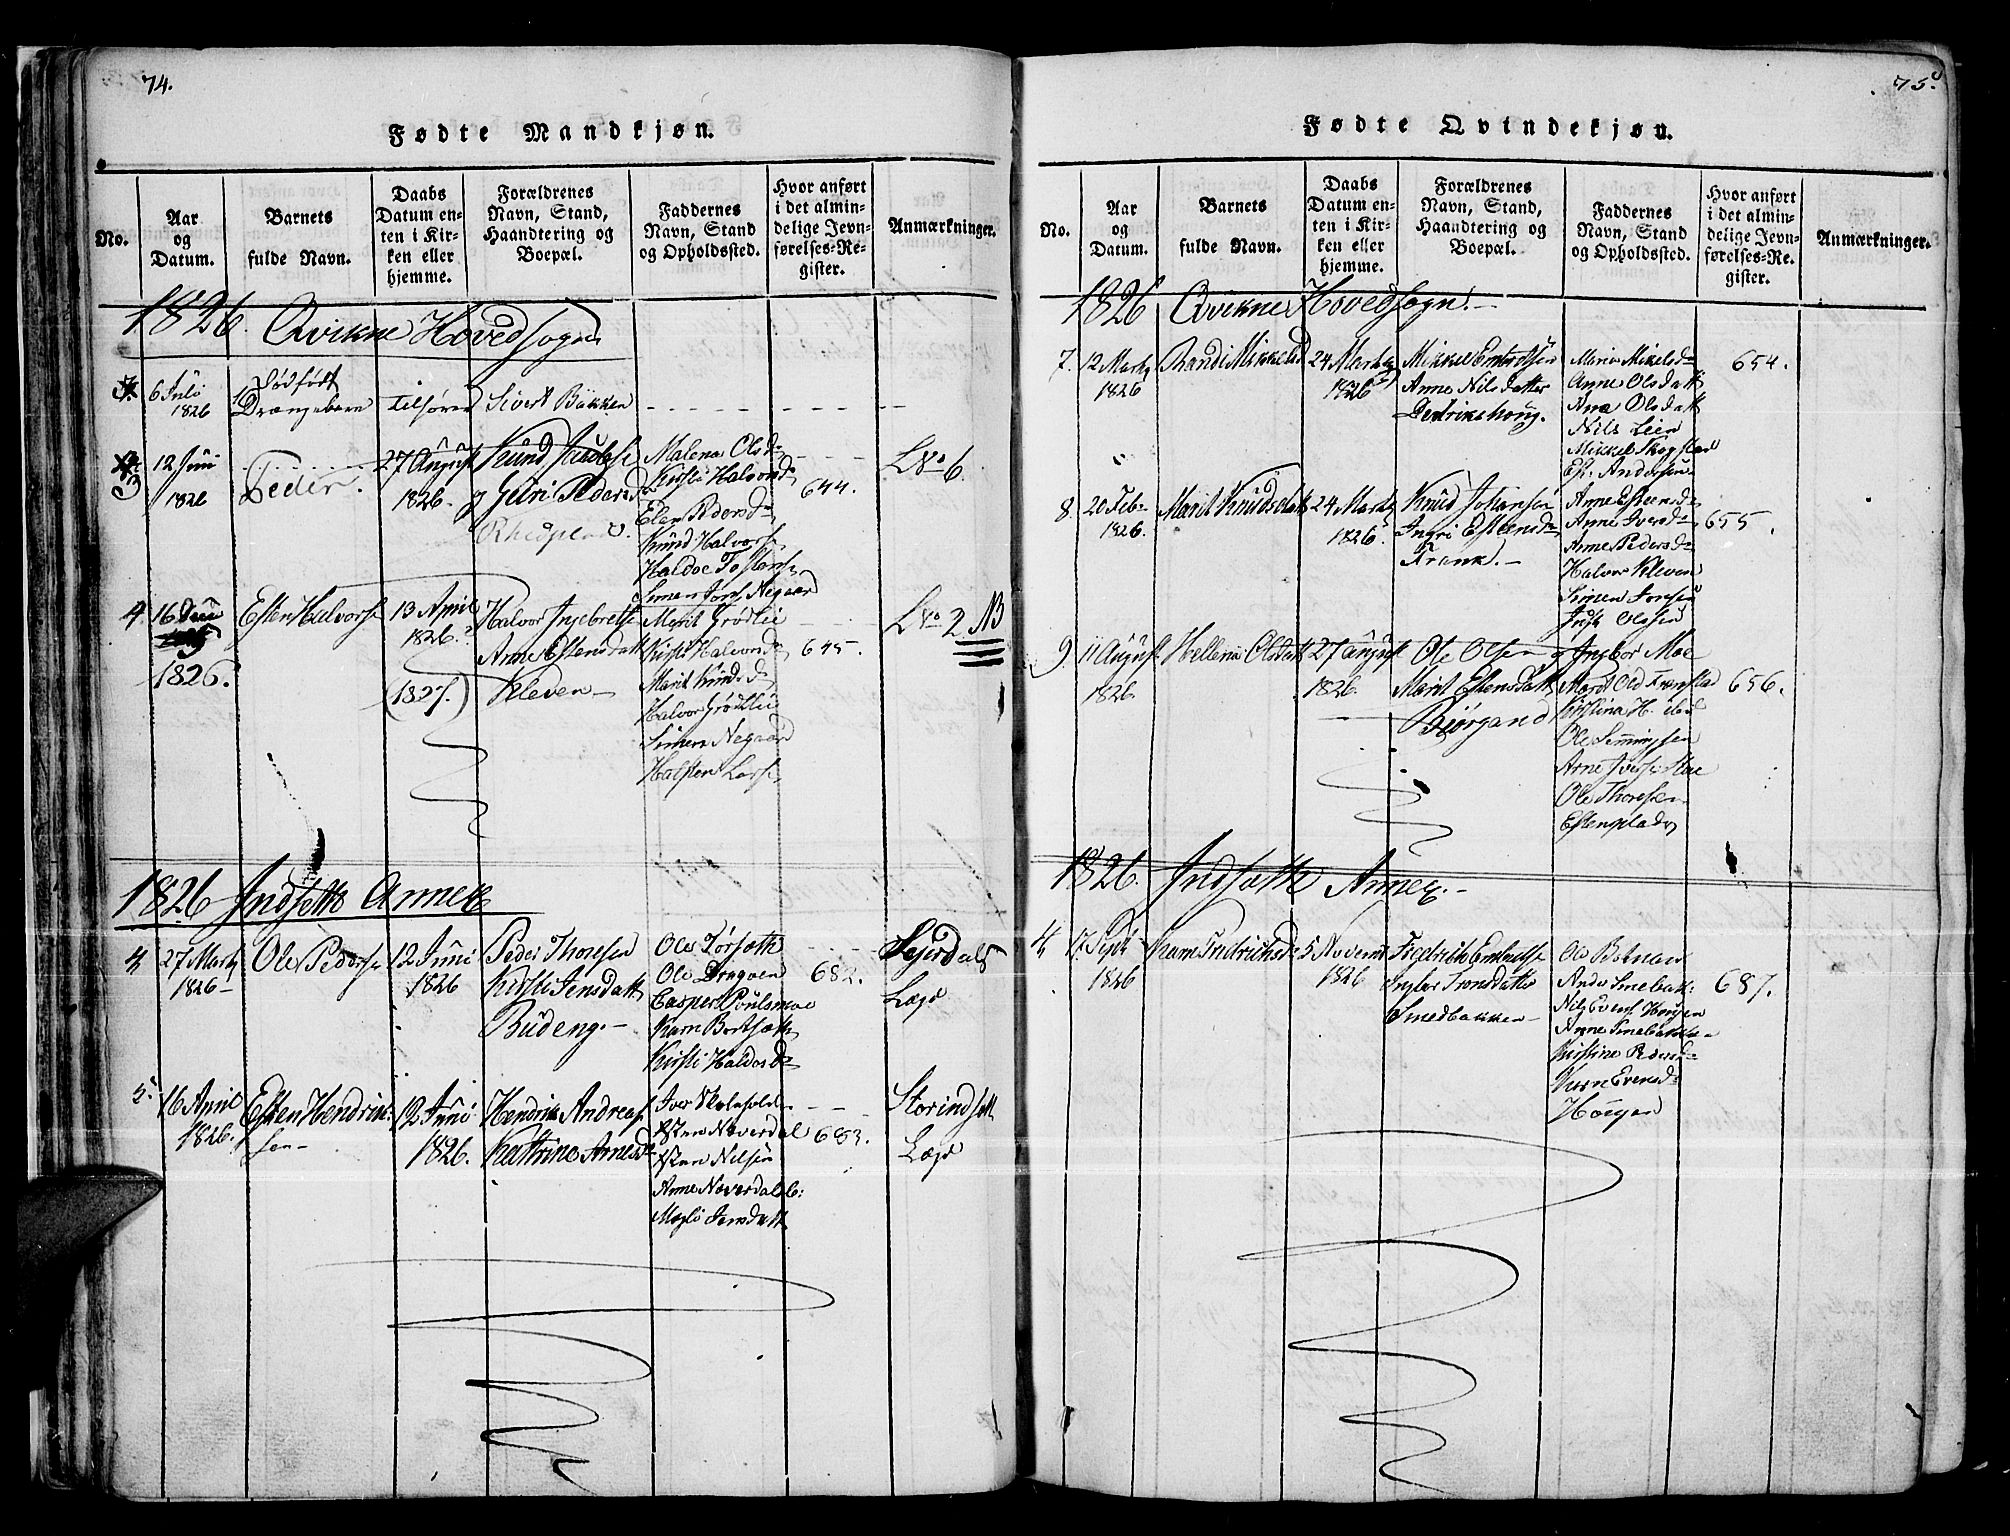 74.
Fødte Mandkjøn.
No.
Aar
og
Datum.
Barnets
fulde Navn.
Daabs
Datum en-
ten i Kir-
ken eller
hjemme.
Forældrenes
Navn, Stand,
Haandtering og
Boepæl.
Faddernes
Navn, Stand
og Opholdssted.
Hvor anført
i det almin-
delige Jevn-
førelses-Re-
gister.
Anmærkninger.
1826. Qvikne Hovedsogn
6 Juli
1826
Dødfødt
Drængebarn
tilhører
Sivert Bakken
12 Juni
1826
Peder.
27 August
1826.
Knud
og Guri Pedersd
Malena Olsd
Kirsti Halvorsd
Elen Pedersd
Knud Halvors
Haldoe
Simen Jons Negaard
644.
L No 6.
4.
16
1826.
Esten Halvors
13 April
1826.
(1827.)
Halvor Ingebrets
Anne Estensdatt
Kleven
Marit Grødlii
Kirsti Halvorsd
Marit Knudsd
Halvor Grødlii
Simen Negaard
Halsten Lars
645.
L No 2 NB
1826 Indsett Annex
4
27 Marty
1826
Ole Peders
12 Juni
1826
Peder Thoresen
Kirsti Jensdatt
Budeng.
Ole
Ole Dragoen
Casper Poulsmoe
Karn
Kirsti Haldosd
682.
Lægd
5
16 April
1826.
Esten Hendrik-
sen
12 Juni
1826.
Hendrik Andreas
Kattrine Arnesd
Iver
Esten Naverdal
Esten Nilsen
Anne Naverdal
Magli Jensdatt
683.
Storindset
Lægd
75.
Fødte Qvindekjøn.
No.
Aar
og
Datum.
Barnets
fulde Navn.
Daabs
Datum en-
ten i Kir-
ken eller
hjemme.
Forældrenes
Navn, Stand,
Haandtering og
Boepæl.
Faddernes
Navn, Stand
og Opholdssted.
Hvor anført
i det almin-
delige Jevn-
førelses-Re-
gister.
Anmærkninger.
1826 Qvikne Hovedsogn.
7.
12 Marty
1826
Randi Mikkelsd
24 Marty
1826
Mikkel Embretsen
Anne Nilsdatter
Dedrikshoug.
Maria Mikelsd
Anne Olsdatt
Ane Olsdatt
Nils Leer
Mikkel Skogstad
Es. Andersen
654.
8.
20 Feb.
1826.
Marit Knudsdatt
24 Marty
1826.
Knud Johansen
Ingri Estensd
Frenk.
Anne Estensd
Anne Iversd
Anne Pedersd
Halvor Kleven
Simen Jonsen
Olsen
655.
9
11 August
1826
Hellena Olsdatt
27 August
1826.
Ole Olsen og
Marit Estensdatt
Biørgand
Ingbor Moe
Marit Old Frenstad
Kirstina H.
Ole Semingsen
Arne Ivers Moe
Ole Thoresen
Estensplads
656.
1826. Indsætt Annex.
4
17 Sept
1826
Karn Fredrichsd
5 Novem
1826
Fredrich Embrets
Ingber Tronsdatter
Smedbakken
Ole
Anders Smebak:
Nils Evens Hougen
Anne Smebakken
Kirstine Pedersd
Karn Evensd
Hougen
687.